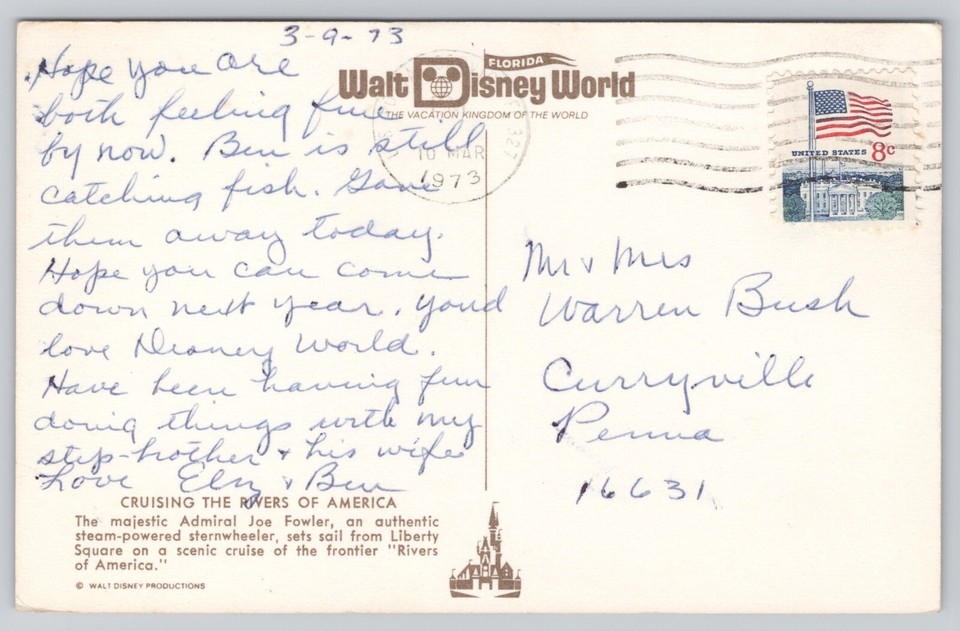 3-9-73
Hope you are
both feeling fine
by now. Ben is still
catching fish. Gave
them away today.
Hope you can come
down next year. youd
love Disney World.
Have been having fun
doing things with my
step-brother & his wife
Love Elsy & Ben
FLORIDA
Walt Disney World
THE VACATION KINGDOM OF THE WORLD
10 MAR
1973
327
UNITED STATES 8c
Mr & Mrs
Warren Bush
Curryville
Penna
16631
CRUISING THE RIVERS OF AMERICA
The majestic Admiral Joe Fowler, an authentic
steam-powered sternwheeler, sets sail from Liberty
Square on a scenic cruise of the frontier "Rivers
of America."
© WALT DISNEY PRODUCTIONS